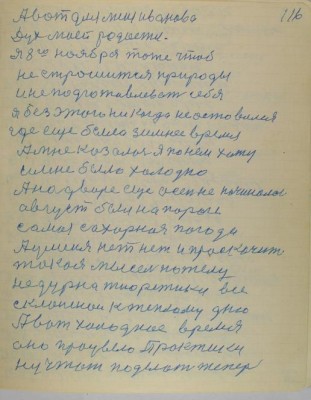 116
А вот для меня иванова
Дух маст родости.
Я 8го ноября тоже чтоб
не строшится природы
и не подготовлевать себя
я без этого никогда не оставился
где еще было зимнее время
А мне казалося я по нем хожу
и мне было холодно
А на дворе еще осен не починалос
август был на пороге
самая сахорная погода
А у меня нет нет и проскочить
такая мысел по телу
не дурна тиоретики все
склонной к теплому дню
А вот холодное время
оно проувело Практики
ну что ж поделат тепер